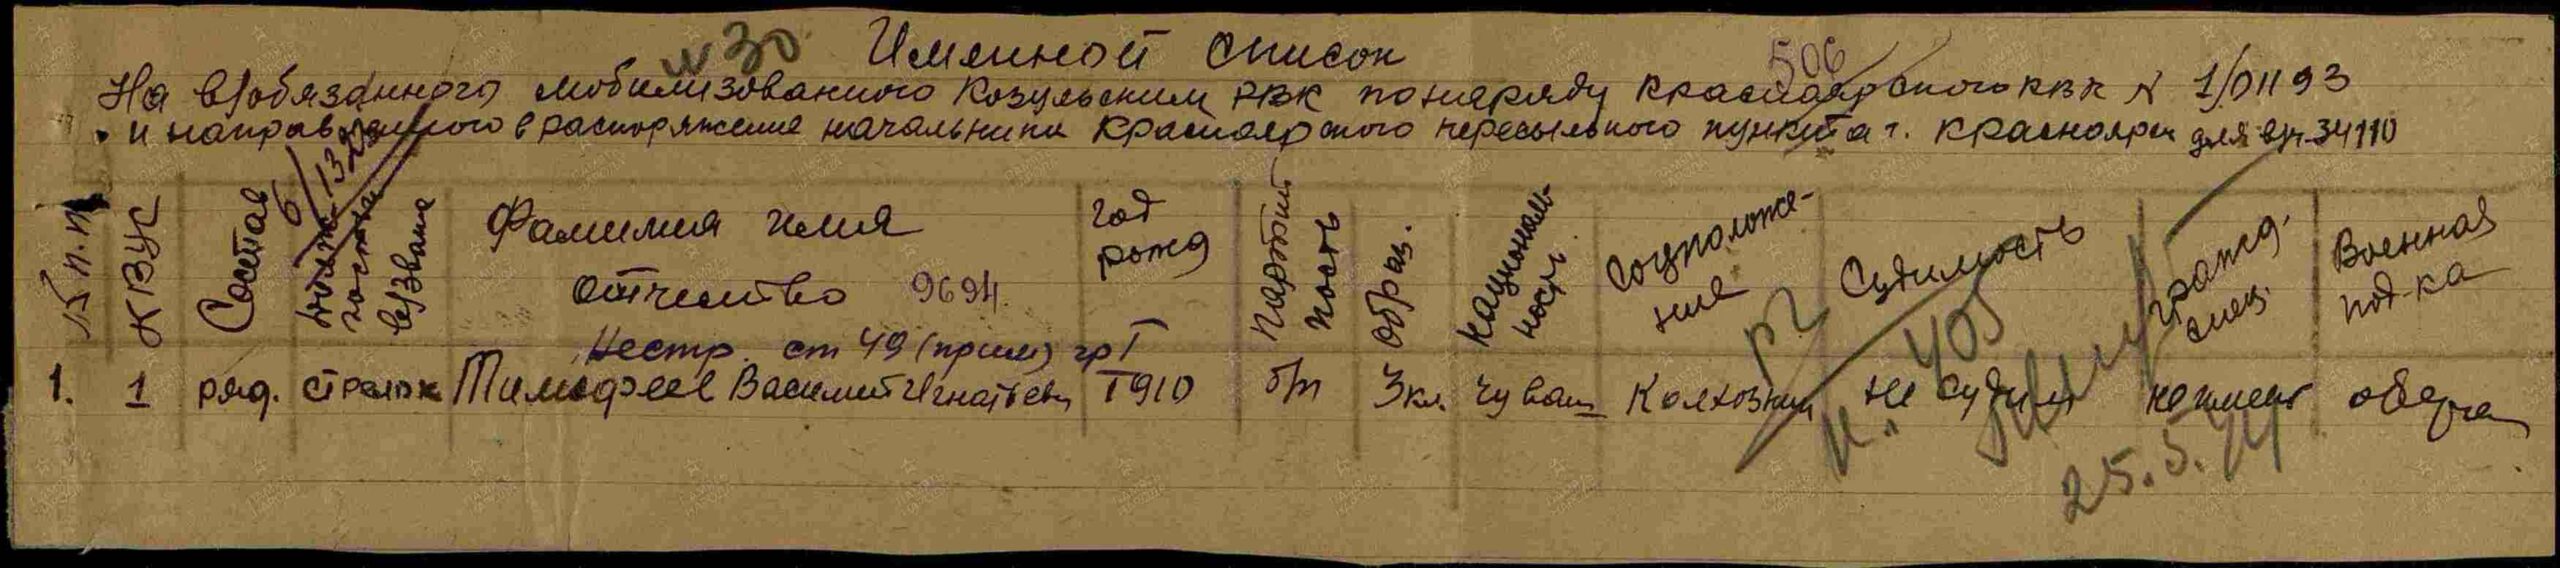 № 30. Именной список
506
На в/обязанного мобилизованного Козульским РВК по наряду Красноярского КВК № 1/01193
и направленного в распоряжение начальника Красноярского пересыльного пункта г. Красноярск для в/ч 34110
6/1323
№ п.п.
К ВУС
Состав
звание
Фамилия имя
отчество 9694.
год
рожд
Партий
ность
Образ.
Националь-
ность.
Соцположе-
ние
Судимость
гражд.
спец.
Военная
под-ка
Нестр. ст 49 (прим) гр I
1. 1 ряд. стрелок Тимофеев Василий Игнатьев 1910 б/п 3 кл. чуваш Колхозник не судим не имеет обуч
405
25.5.44